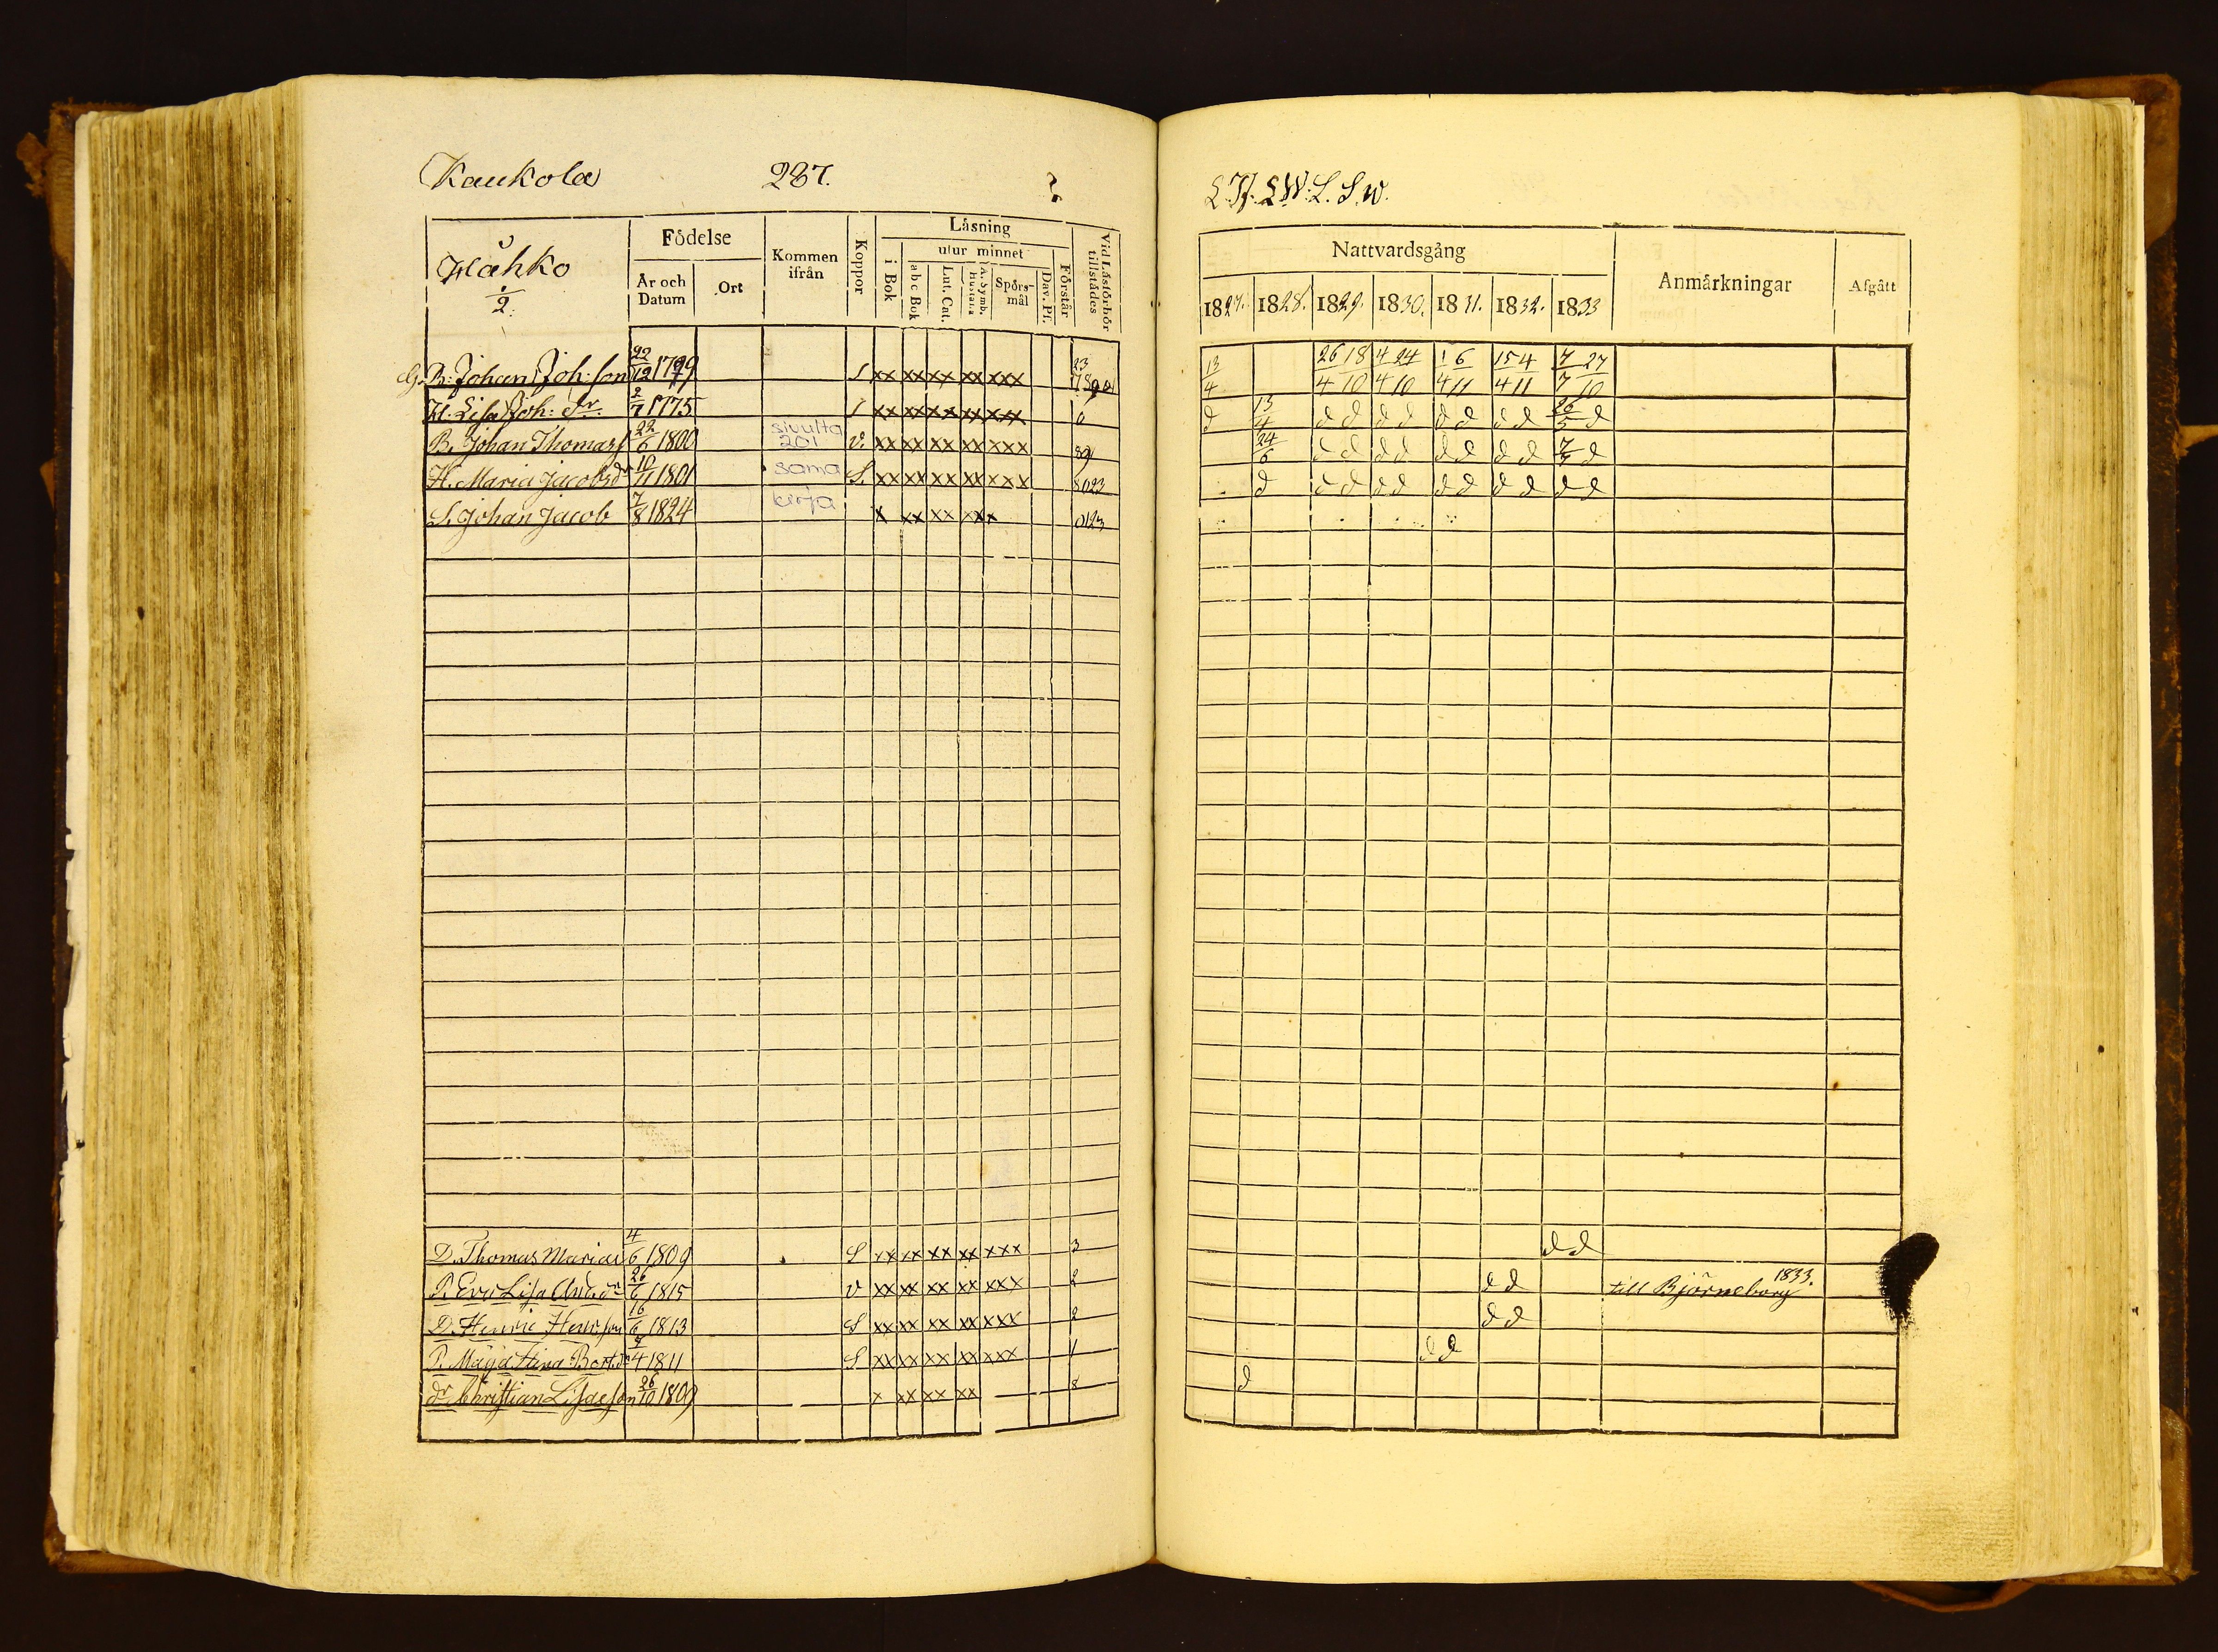 Kaukola 287.
Håhko
1/2.
Födelse
År och Datum
Ort
Kommen ifrån
Koppor
Läsning
i Bok
utur minnet
a b c Bok
Lut. Cat.
A. Symb. Hustafla
Spörsmål
Dav. Ps.
Förstår
Vid Läsförhör tillstädes
G. B. Johan Joh:son 22/12 1779 S xx xx xx xx xxx 23
H. Lisa Joh: dr 2/7 1775 S xx xx xx xx xxx 0
B. Johan Thomass 22/6 1800 sivulta 201 v. xx xx xx xx xxx 89
H. Maria Jacobsdr 10/11 1801 sama S. xx xx xx xx xxx 8023
S. Johan Jacob 7/8 1824 kirja x xx xx xxx 0123
D. Thomas Mariae 4/6 1809 S xx xx xx xx xxx 3
P. Eva Lisa And.dr 26/6 1815 v xx xx xx xx xxx 2
D. Henric Henr.son 16/6 1813 S xx xx xx xx xxx 2
P. Maja Stina Bert.dr 1811 S xx xx xx xx xxx 1
dr Christian Lisaeson 26/10 1809 x xx xx xx 8
L. S. W.
Nattvardsgång
Anmärkningar
Afgått
1827. 1828. 1829. 1830. 1831. 1832. 1833
13/4 26/4 18/10 4/4 24/10 1/4 6/11 15/4 4/11 7/7 27/10
d 13/4 d d d d d d d d 26/5 d
24/6 d d d d d d d d 7/7 d
d d d d d d d d d d d
d d
d d till Björneborg 1833.
d d
d d
d